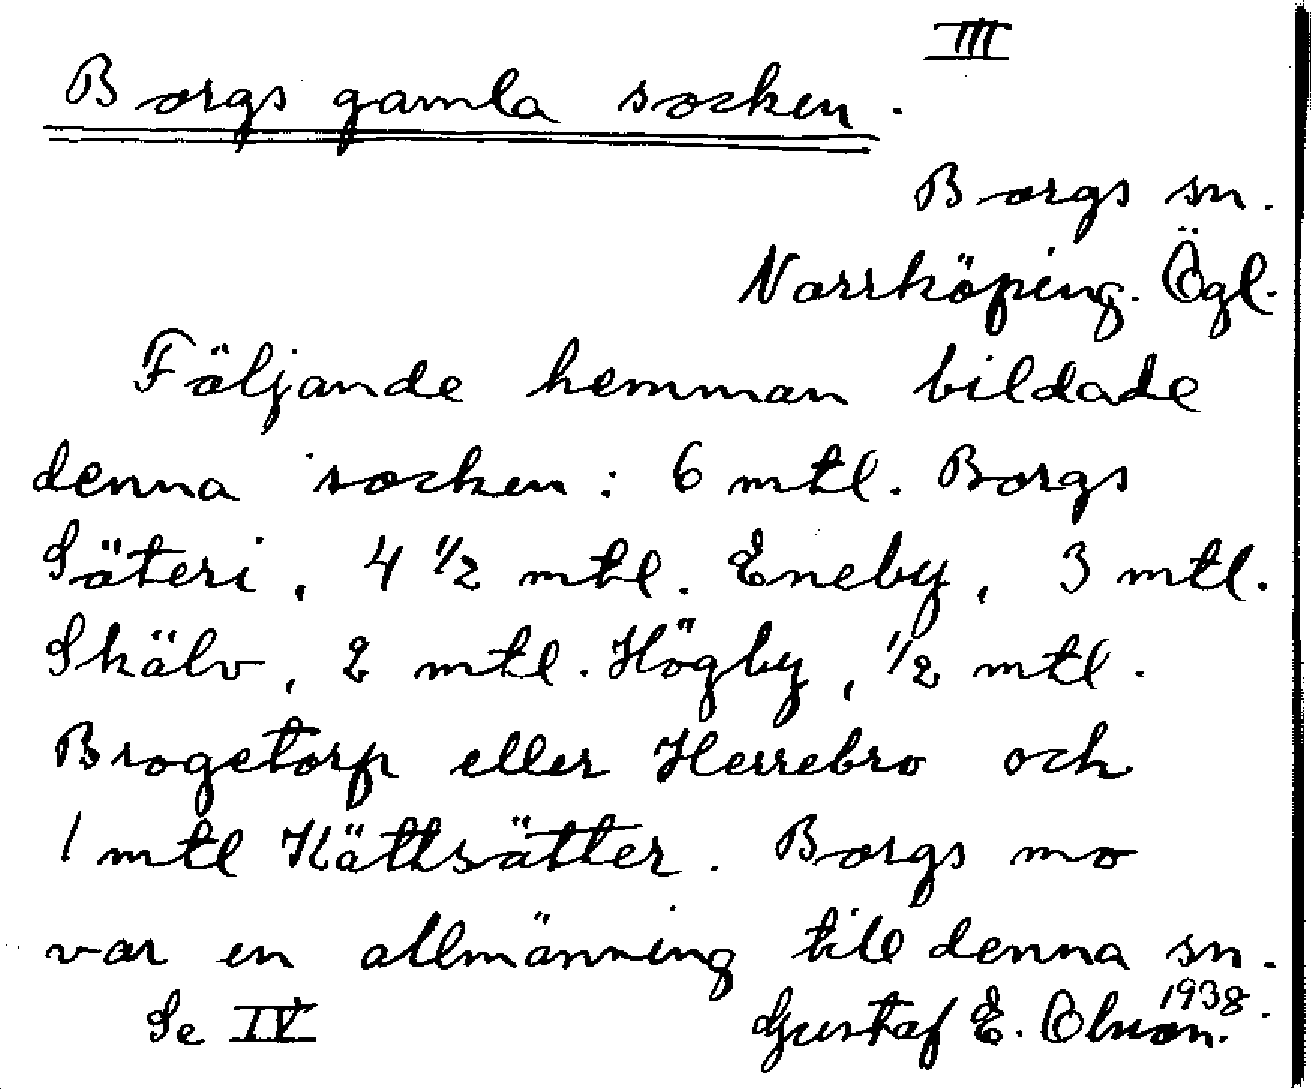 III
Borgs gamla socken.
Borgs sn.
Norrköping. Ögl.
Följande hemman bildade
denna socken: 6 mtl. Borgs
Säteri, 4 1/2 mtl. Eneby, 3 mtl.
Skälv, 2 mtl. Högby, 1/2 mtl.
Brogetorp eller Herrebro och
1 mtl Kättsätter. Borgs mo
var en allmänning till denna sn.
Se IV Gustaf E. Olsson. 1938.